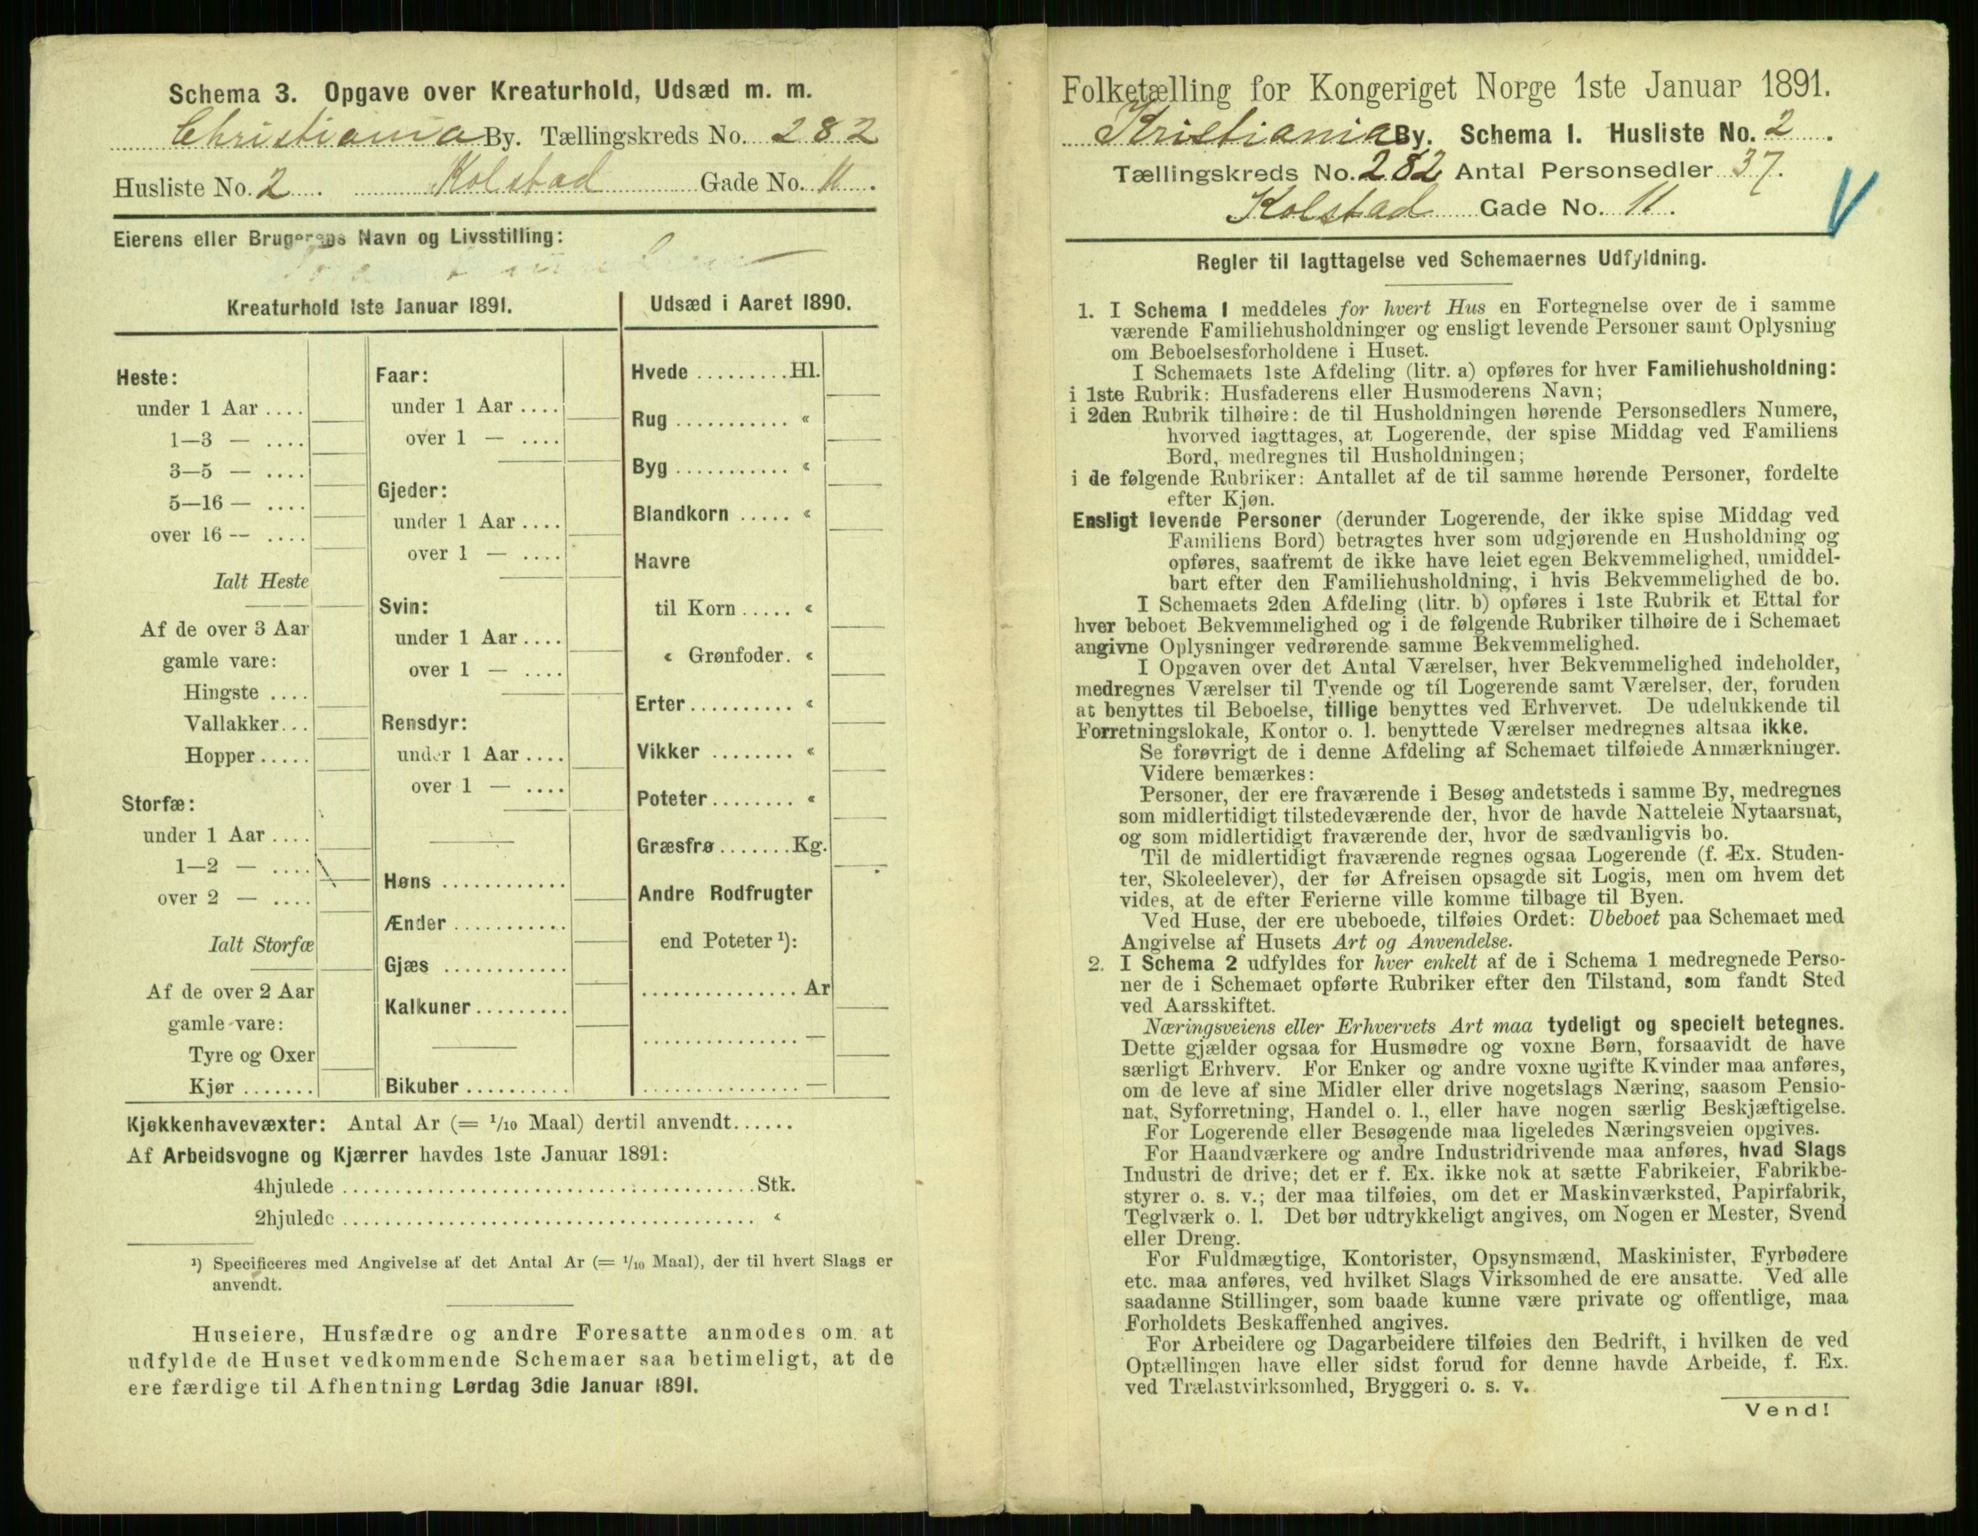 Schema 3. Opgave over Kreaturhold, Udsæd m. m.
Christiania By. Tællingskreds No. 282
Husliste No. 2 Kolstad Gade No. 11.
Eierens eller Brugerens Navn og Livsstilling:
Kreaturhold 1ste Januar 1891.
Heste:
under 1 Aar ....
1—3 — ....
3—5 — ....
5—16 — ....
over 16 — ....
Ialt Heste
Af de over 3 Aar
gamle vare:
Hingste ....
Vallakker...
Hopper.....
Storfæ:
under 1 Aar ....
1—2 — ....
over 2 — ....
Ialt Storfæ
Af de over 2 Aar
gamle vare:
Tyre og Oxer
Kjør .......
Faar:
under 1 Aar ....
over 1 — ....
Gjeder:
under 1 Aar ....
over 1 — ....
Svin:
under 1 Aar ....
over 1 — ....
Rensdyr:
under 1 Aar ....
over 1 — ....
Høns ............
Ænder ...........
Gjæs ............
Kalkuner.........
Bikuber ..........
Udsæd i Aaret 1890.
Hvede .........Hl.
Rug ........... «
Byg ........... «
Blandkorn ..... «
Havre
til Korn ..... «
« Grønfoder. «
Erter.......... «
Vikker ........ «
Poteter........ «
Græsfrø .......Kg.
Andre Rodfrugter
end Poteter ¹):
............... Ar
............... —
............... —
Kjøkkenhavevæxter: Antal Ar (= 1/10 Maal) dertil anvendt......
Af Arbeidsvogne og Kjærrer havdes 1ste Januar 1891:
4hjulede ........................................Stk.
2hjulede ........................................ «
¹) Specificeres med Angivelse af det Antal Ar (= 1/10 Maal), der til hvert Slags er
anvendt.
Huseiere, Husfædre og andre Foresatte anmodes om at
udfylde de Huset vedkommende Schemaer saa betimeligt, at de
ere færdige til Afhentning Lørdag 3die Januar 1891.
Folketælling for Kongeriget Norge 1ste Januar 1891.
Kristiania By. Schema I. Husliste No. 2.
Tællingskreds No. 282 Antal Personsedler 37.
Kolstad Gade No. 11.
Regler til Iagttagelse ved Schemaernes Udfyldning.
1. I Schema 1 meddeles for hvert Hus en Fortegnelse over de i samme
værende Familiehusholdninger og ensligt levende Personer samt Oplysning
om Beboelsesforholdene i Huset.
I Schemaets 1ste Afdeling (litr. a) opføres for hver Familiehusholdning:
i 1ste Rubrik: Husfaderens eller Husmoderens Navn;
i 2den Rubrik tilhøire: de til Husholdningen hørende Personsedlers Numere,
hvorved iagttages, at Logerende, der spise Middag ved Familiens
Bord, medregnes til Husholdningen;
i de følgende Rubriker: Antallet af de til samme hørende Personer, fordelte
efter Kjøn.
Ensligt levende Personer (derunder Logerende, der ikke spise Middag ved
Familiens Bord) betragtes hver som udgjørende en Husholdning og
opføres, saafremt de ikke have leiet egen Bekvemmelighed, umiddel-
bart efter den Familiehusholdning, i hvis Bekvemmelighed de bo.
I Schemaets 2den Afdeling (litr. b) opføres i 1ste Rubrik et Ettal for
hver beboet Bekvemmelighed og i de følgende Rubriker tilhøire de i Schemaet
angivne Oplysninger vedrørende samme Bekvemmelighed.
I Opgaven over det Antal Værelser, hver Bekvemmelighed indeholder,
medregnes Værelser til Tyende og til Logerende samt Værelser, der, foruden
at benyttes til Beboelse, tillige benyttes ved Erhvervet. De udelukkende til
Forretningslokale, Kontor o. l. benyttede Værelser medregnes altsaa ikke.
Se forøvrigt de i denne Afdeling af Schemaet tilføiede Anmærkninger.
Videre bemærkes:
Personer, der ere fraværende i Besøg andetsteds i samme By, medregnes
som midlertidigt tilstedeværende der, hvor de havde Natteleie Nytaarsnat,
og som midlertidigt fraværende der, hvor de sædvanligvis bo.
Til de midlertidigt fraværende regnes ogsaa Logerende (f. Ex. Studen-
ter, Skoleelever), der før Afreisen opsagde sit Logis, men om hvem det
vides, at de efter Ferierne ville komme tilbage til Byen.
Ved Huse, der ere ubeboede, tilføies Ordet: Ubeboet paa Schemaet med
Angivelse af Husets Art og Anvendelse.
2. I Schema 2 udfyldes for hver enkelt af de i Schema 1 medregnede Perso-
ner de i Schemaet opførte Rubriker efter den Tilstand, som fandt Sted
ved Aarsskiftet.
Næringsveiens eller Erhvervets Art maa tydeligt og specielt betegnes.
Dette gjælder ogsaa for Husmødre og voxne Børn, forsaavidt de have
særligt Erhverv. For Enker og andre voxne ugifte Kvinder maa anføres,
om de leve af sine Midler eller drive nogetslags Næring, saasom Pensio-
nat, Syforretning, Handel o. l., eller have nogen særlig Beskjæftigelse.
For Logerende eller Besøgende maa ligeledes Næringsveien opgives.
For Haandværkere og andre Industridrivende maa anføres, hvad Slags
Industri de drive; det er f. Ex. ikke nok at sætte Fabrikeier, Fabrikbe-
styrer o. s. v.; der maa tilføies, om det er Maskinværksted, Papirfabrik,
Teglværk o. l. Det bør udtrykkeligt angives, om Nogen er Mester, Svend
eller Dreng.
For Fuldmægtige, Kontorister, Opsynsmænd, Maskinister, Fyrbødere
etc. maa anføres, ved hvilket Slags Virksomhed de ere ansatte. Ved alle
saadanne Stillinger, som baade kunne være private og offentlige, maa
Forholdets Beskaffenhed angives.
For Arbeidere og Dagarbeidere tilføies den Bedrift, i hvilken de ved
Optællingen have eller sidst forud for denne havde Arbeide, f. Ex.
ved Trælastvirksomhed, Bryggeri o. s. v.
Vend!